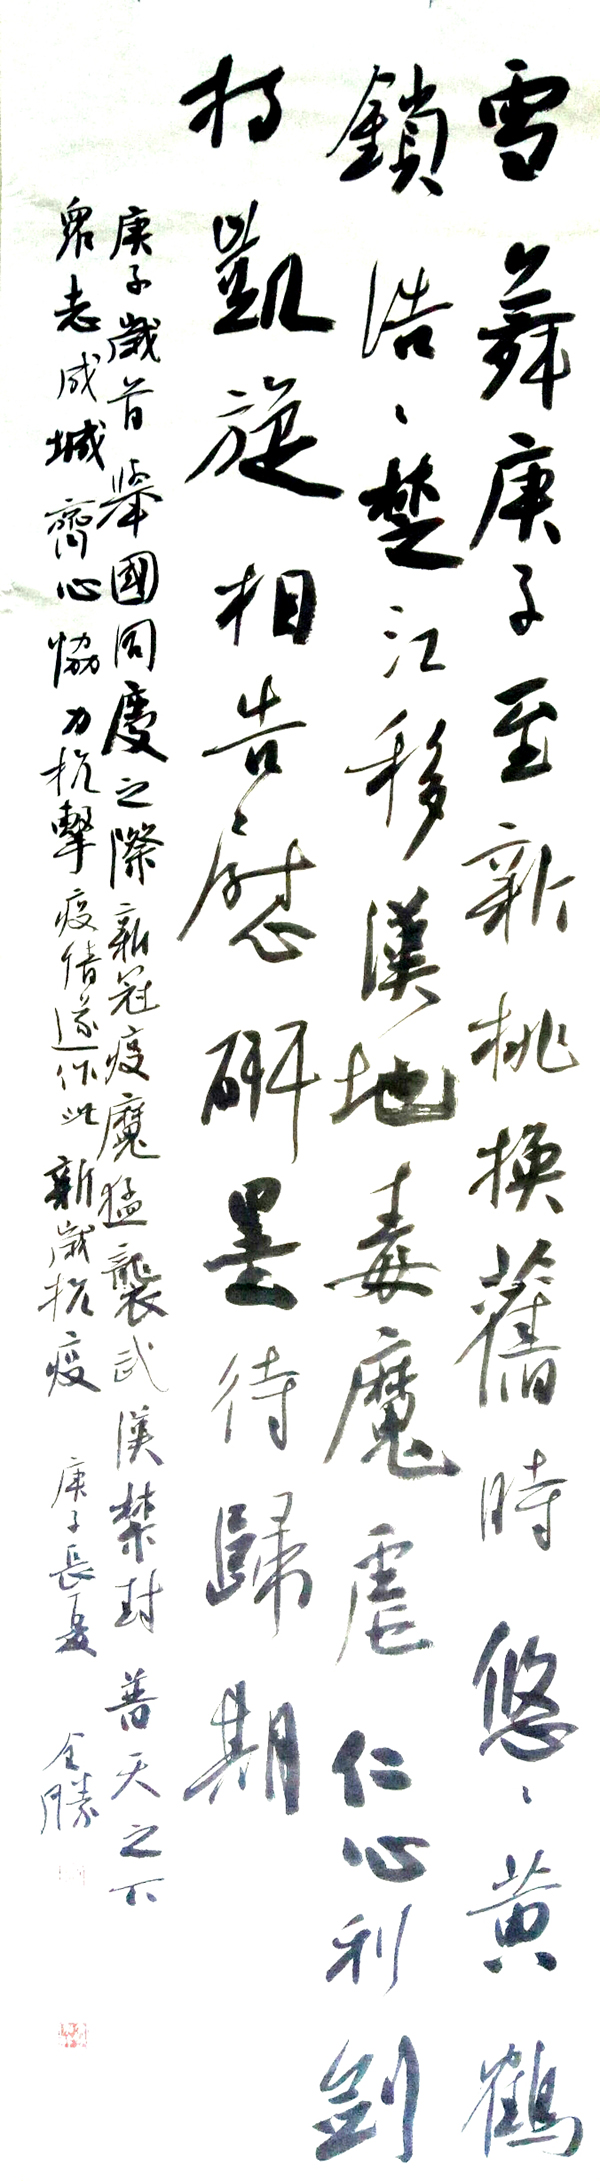 雪舞庚子至新桃換舊時悠〻黄鶴
鎖浩〻楚江移漢地毒魔虐仁心利劍
持凱旋相告慰研墨待歸期
庚子歲首舉國同慶之際新冠疫魔猛襲武漢禁封普天之下
眾志成城齊心協力抗擊疫情遂作此新歲抗疫
庚子長夏
全勝